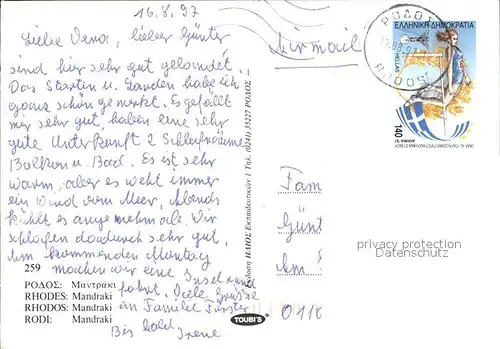 16.8.97
Liebe Vera, lieber Günter
sind hier sehr gut gelandet.
Das Starten u. Landen habe ich
ganz schön gemerkt. Es gefällt
mir sehr gut, haben eine sehr
gute Unterkunft 2 Schlafräume
Balkon u. Bad. Es ist sehr
warm, aber es weht immer
ein Wind vom Meer, Abends
kühlt es angenehm ab. Wir
schlafen dadurch sehr gut,
Am kommenden Montag
machen wir eine Inselrund
fahrt. Viele Grüsse
an Familie Förster
Bis bald
Irene
259
ΡΟΔΟΣ: Μαντράκι
RHODES: Mandraki
RHODOS: Mandraki
RODI: Mandraki
Έκδοση ΗΛΙΟΣ Εκπαιδευτικών 1 Τηλ. (0241) 35227 ΡΟΔΟΣ
TOUBI'S
Air mail
ΡΟΔΟΣ
RODOS
ΕΛΛΗΝΙΚΗ ΔΗΜΟΚΡΑΤΙΑ
HELLAS
140
Fam
Günt
Am
0116
privacy protection
Datenschutz